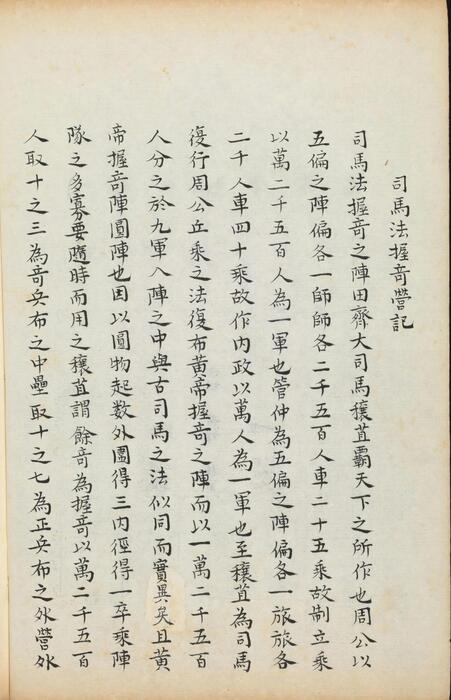 司馬法握奇營記
司馬法握奇之陣田齊大司馬穰苴霸天下之所作也周公以
五偏之陣偏各一師師各二千五百人車二十五乘故制立乘
以萬二千五百人為一軍也管仲為五偏之陣偏各一旅旅各
二千人車四十乘故作內政以萬人為一軍也至穰苴為司馬
復行周公丘乘之法復布黃帝握奇之陣而以一萬二千五百
人分之於九軍八陣之中與古司馬之法似同而實異矣且黃
帝握奇陣圓陣也因以圓物起数外圍得三內徑得一卒乘陣
隊之多寡要隨時而用之穰苴謂餘奇為握奇以萬二千五百
人取十之三為奇兵布之中壘取十之七為正兵布之外營外